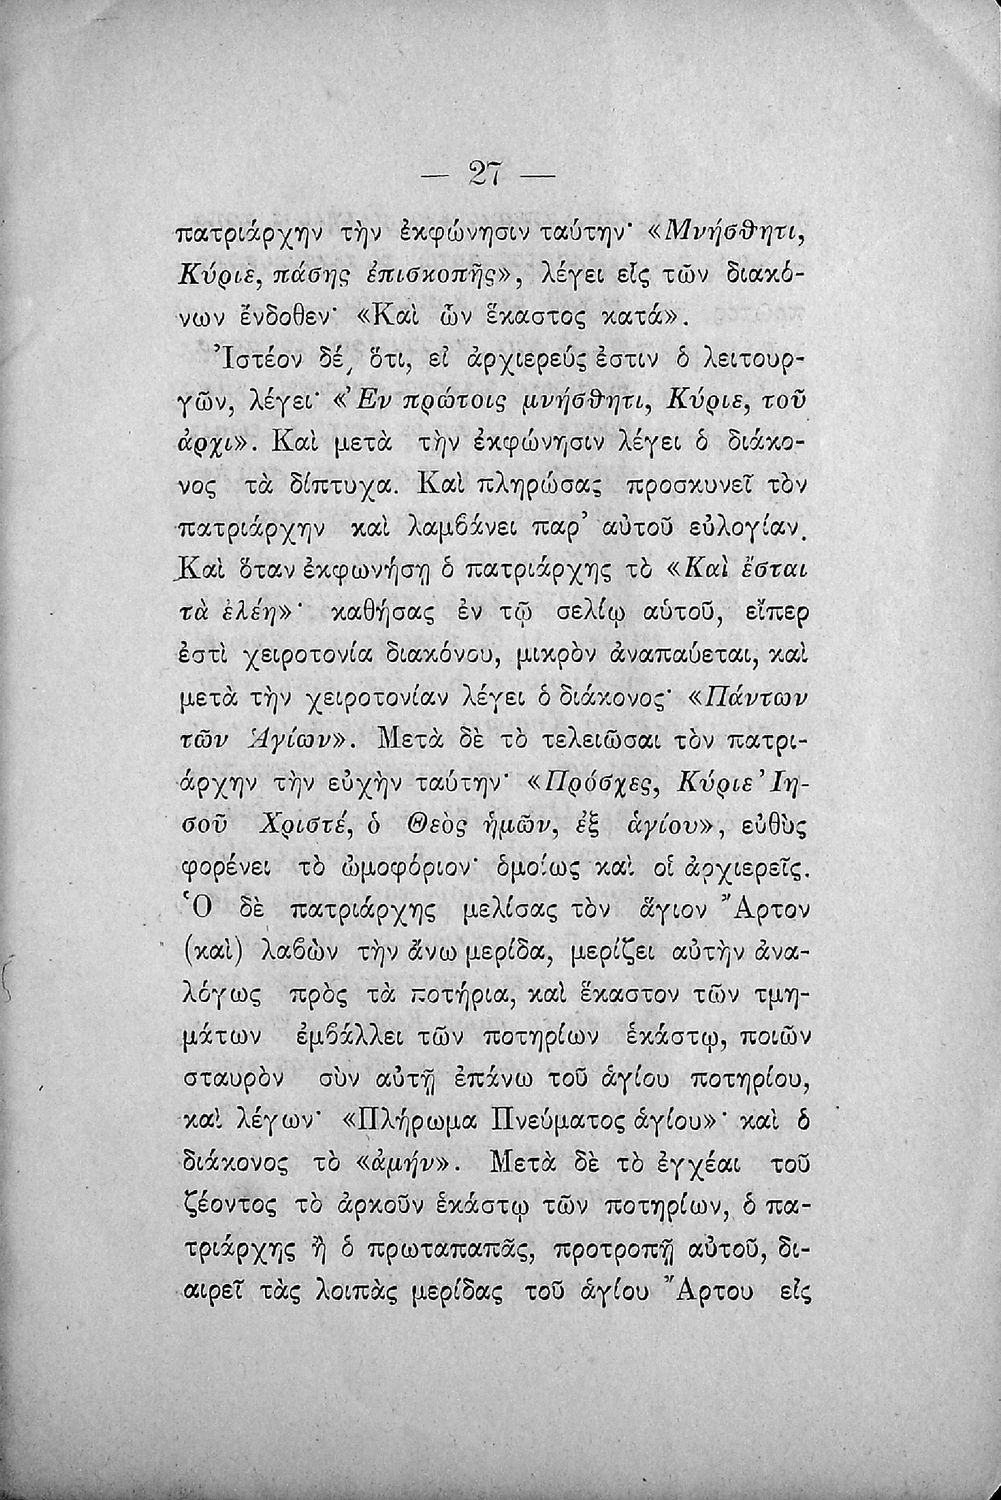 — 27 —
πατριάρχην τὴν ἐκφώνησιν ταύτην· «Μνήσθητι,
Κύριε, πάσης ἐπισκοπῆς», λέγει εἷς τῶν διακό-
νων ἔνδοθεν· «Καὶ ὧν ἕκαστος κατά».
Ἰστέον δέ, ὅτι, εἰ ἀρχιερεύς ἐστιν ὁ λειτουρ-
γῶν, λέγει· «Ἐν πρώτοις μνήσθητι, Κύριε, τοῦ
ἀρχι». Καὶ μετὰ τὴν ἐκφώνησιν λέγει ὁ διάκο-
νος τὰ δίπτυχα. Καὶ πληρώσας προσκυνεῖ τὸν
πατριάρχην καὶ λαμβάνει παρ' αὐτοῦ εὐλογίαν.
Καὶ ὅταν ἐκφωνήσῃ ὁ πατριάρχης τὸ «Καὶ ἔσται
τὰ ἐλέη»· καθήσας ἐν τῷ σελίῳ αὑτοῦ, εἴπερ
ἐστὶ χειροτονία διακόνου, μικρὸν ἀναπαύεται, καὶ
μετὰ τὴν χειροτονίαν λέγει ὁ διάκονος· «Πάντων
τῶν Ἁγίων». Μετὰ δὲ τὸ τελειῶσαι τὸν πατρι-
άρχην τὴν εὐχὴν ταύτην· «Πρόσχες, Κύριε Ἰη-
σοῦ Χριστέ, ὁ Θεὸς ἡμῶν, ἐξ ἁγίου», εὐθὺς
φορένει τὸ ὠμοφόριον· ὁμοίως καὶ οἱ ἀρχιερεῖς.
Ὁ δὲ πατριάρχης μελίσας τὸν ἅγιον Ἄρτον
(καὶ) λαβὼν τὴν ἄνω μερίδα, μερίζει αὐτὴν ἀνα-
λόγως πρὸς τὰ ποτήρια, καὶ ἕκαστον τῶν τμη-
μάτων ἐμβάλλει τῶν ποτηρίων ἑκάστῳ, ποιῶν
σταυρὸν σὺν αὐτῇ ἐπάνω τοῦ ἁγίου ποτηρίου,
καὶ λέγων· «Πλήρωμα Πνεύματος ἁγίου»· καὶ ὁ
διάκονος τὸ «ἀμήν». Μετὰ δὲ τὸ ἐγχέαι τοῦ
ζέοντος τὸ ἀρκοῦν ἑκάστῳ τῶν ποτηρίων, ὁ πα-
τριάρχης ἢ ὁ πρωταπαπᾶς, προτροπῇ αὐτοῦ, δι-
αιρεῖ τὰς λοιπὰς μερίδας τοῦ ἁγίου Ἄρτου εἰς